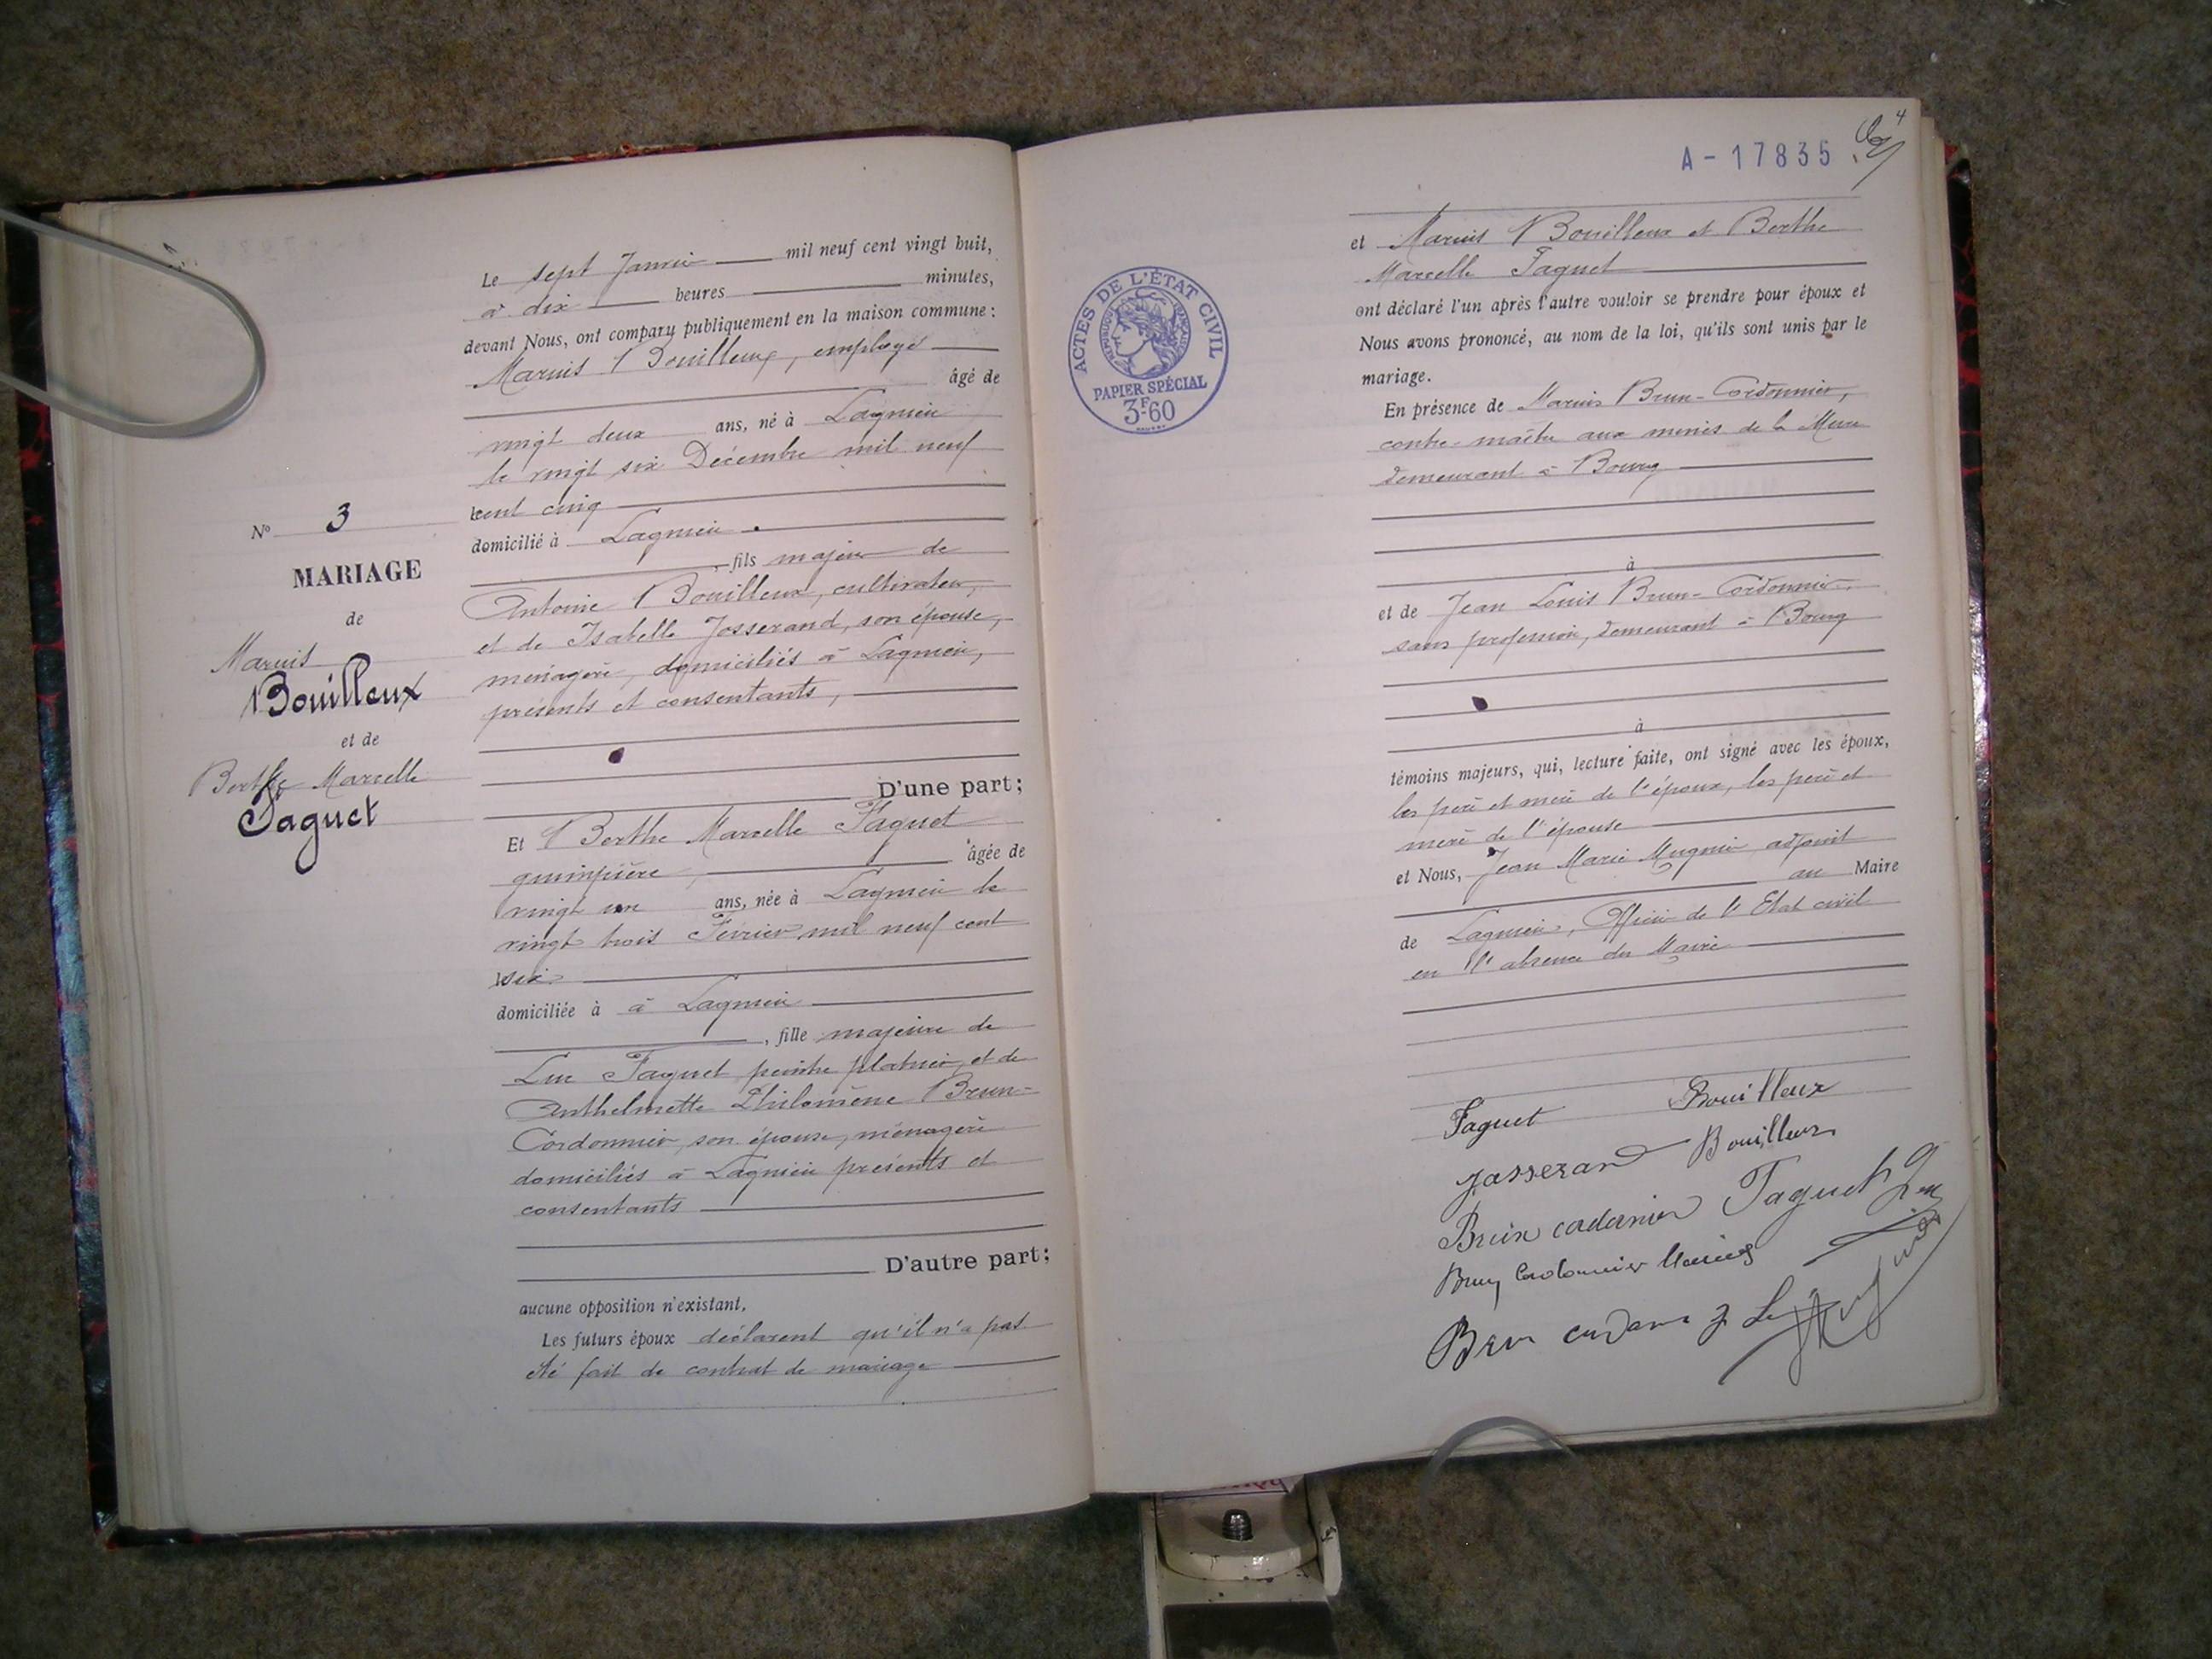 N° 3
MARIAGE
de
Marius
Bouilleux
et de
Berthe Marcelle
Faguet
Le sept Janvier mil neuf cent vingt huit,
à dix heures minutes,
devant Nous, ont comparu publiquement en la maison commune :
Marius Bouilleux, employé
âgé de
vingt deux ans, né à Lagnieu
le vingt six Décembre mil neuf
cent cinq
domicilié à Lagnieu.
, fils majeur de
Antoine Bouilleux, cultivateur,
et de Isabelle Josserand, son épouse,
ménagère, domiciliés à Lagnieu,
présents et consentants,
D'une part ;
Et Berthe Marcelle Faguet
guimpière, âgée de
vingt un ans, née à Lagnieu le
vingt trois Février mil neuf cent
six
domiciliée à à Lagnieu
, fille majeure de
Luc Faguet peintre platrier, et de
Anthelmette Philomène Brun-
Cordonnier, son épouse, ménagère
domiciliés à Lagnieu présents et
consentants
D'autre part ;
aucune opposition n'existant,
Les futurs époux déclarent qu'il n'a pas
été fait de contrat de mariage
A-17835
4
ACTES DE L'ÉTAT CIVIL
RÉPUBLIQUE FRANÇAISE
PAPIER SPÉCIAL
3F.60
et Marius Bouilleux et Berthe
Marcelle Faguet
ont déclaré l'un après l'autre vouloir se prendre pour époux et
Nous avons prononcé, au nom de la loi, qu'ils sont unis par le
mariage.
En présence de Marius Brun-Cordonnier,
contre-maître aux mines de la Mure
demeurant à Bourg
à
et de Jean Louis Brun-Cordonnier,
sans profession, demeurant à Bourg
à
témoins majeurs, qui, lecture faite, ont signé avec les époux,
les père et mère de l'époux, les père et
mère de l'épouse
et Nous, Jean Marie Mugnier adjoint
au Maire
de Lagnieu, Officier de l'Etat civil
en l'absence du Maire
Faguet Bouilleux
Josserand Bouilleux
Brun cordonnier Faguet Luc
Brun Cordonnier Marius
Brun